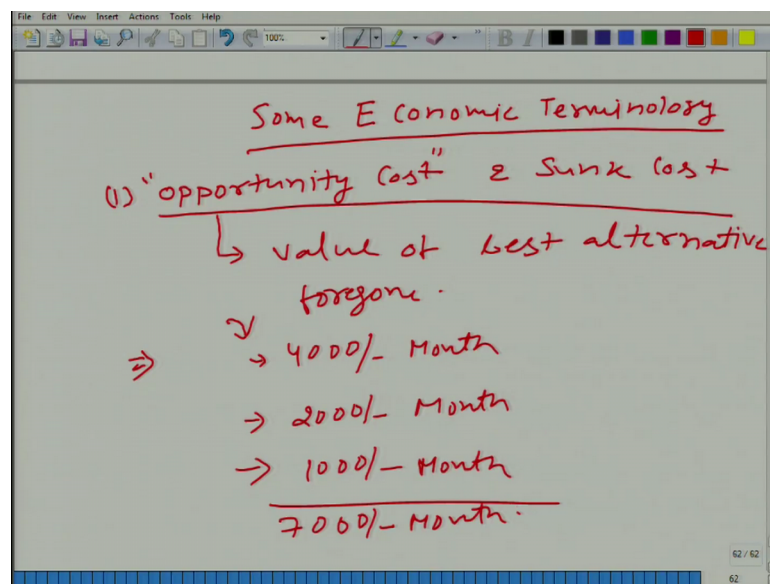 File Edit View Insert Actions Tools Help
100%
Some Economic Terminology
(1) "Opportunity Cost" & Sunk Cost
↳ value of best alternative
foregone.
⇒ → 4000/- Month
→ 2000/- Month
→ 1000/- Month
7000/- Month.
62 / 62
62